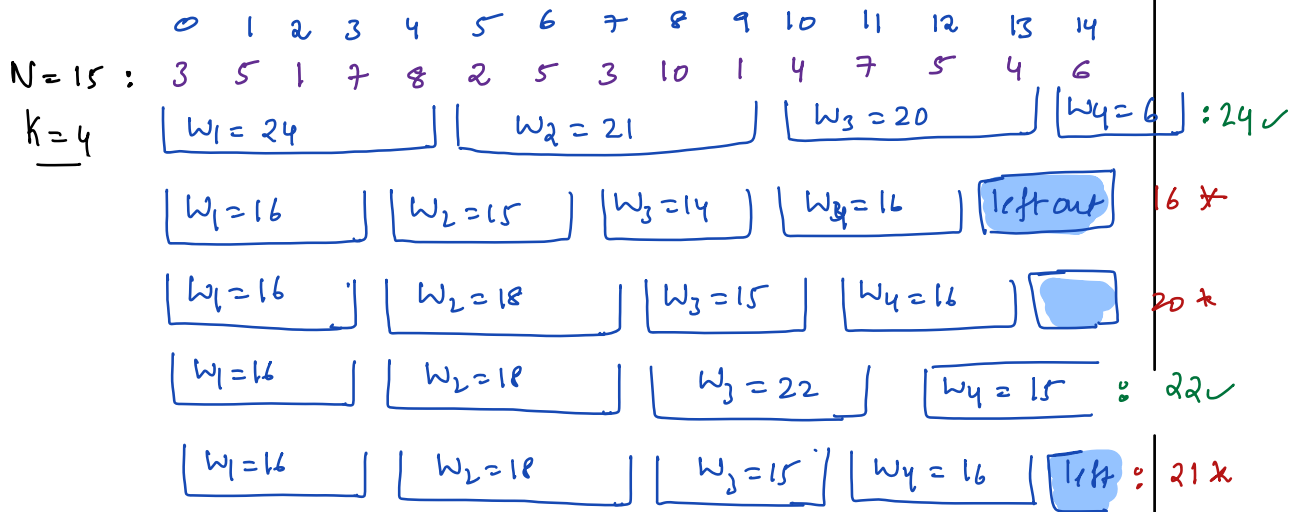 0 1 2 3 4 5 6 7 8 9 10 11 12 13 14
N = 15 : 3 5 1 7 8 2 5 3 10 1 4 7 5 4 6
K = 4 W1 = 24 W2 = 21 W3 = 20 W4 = 6 : 24 ✓
W1 = 16 W2 = 15 W3 = 14 W4 = 16 left out 16 *
W1 = 16 W2 = 18 W3 = 15 W4 = 16 20 *
W1 = 16 W2 = 18 W3 = 22 W4 = 15 : 22 ✓
W1 = 16 W2 = 18 W3 = 15 W4 = 16 left : 21 *